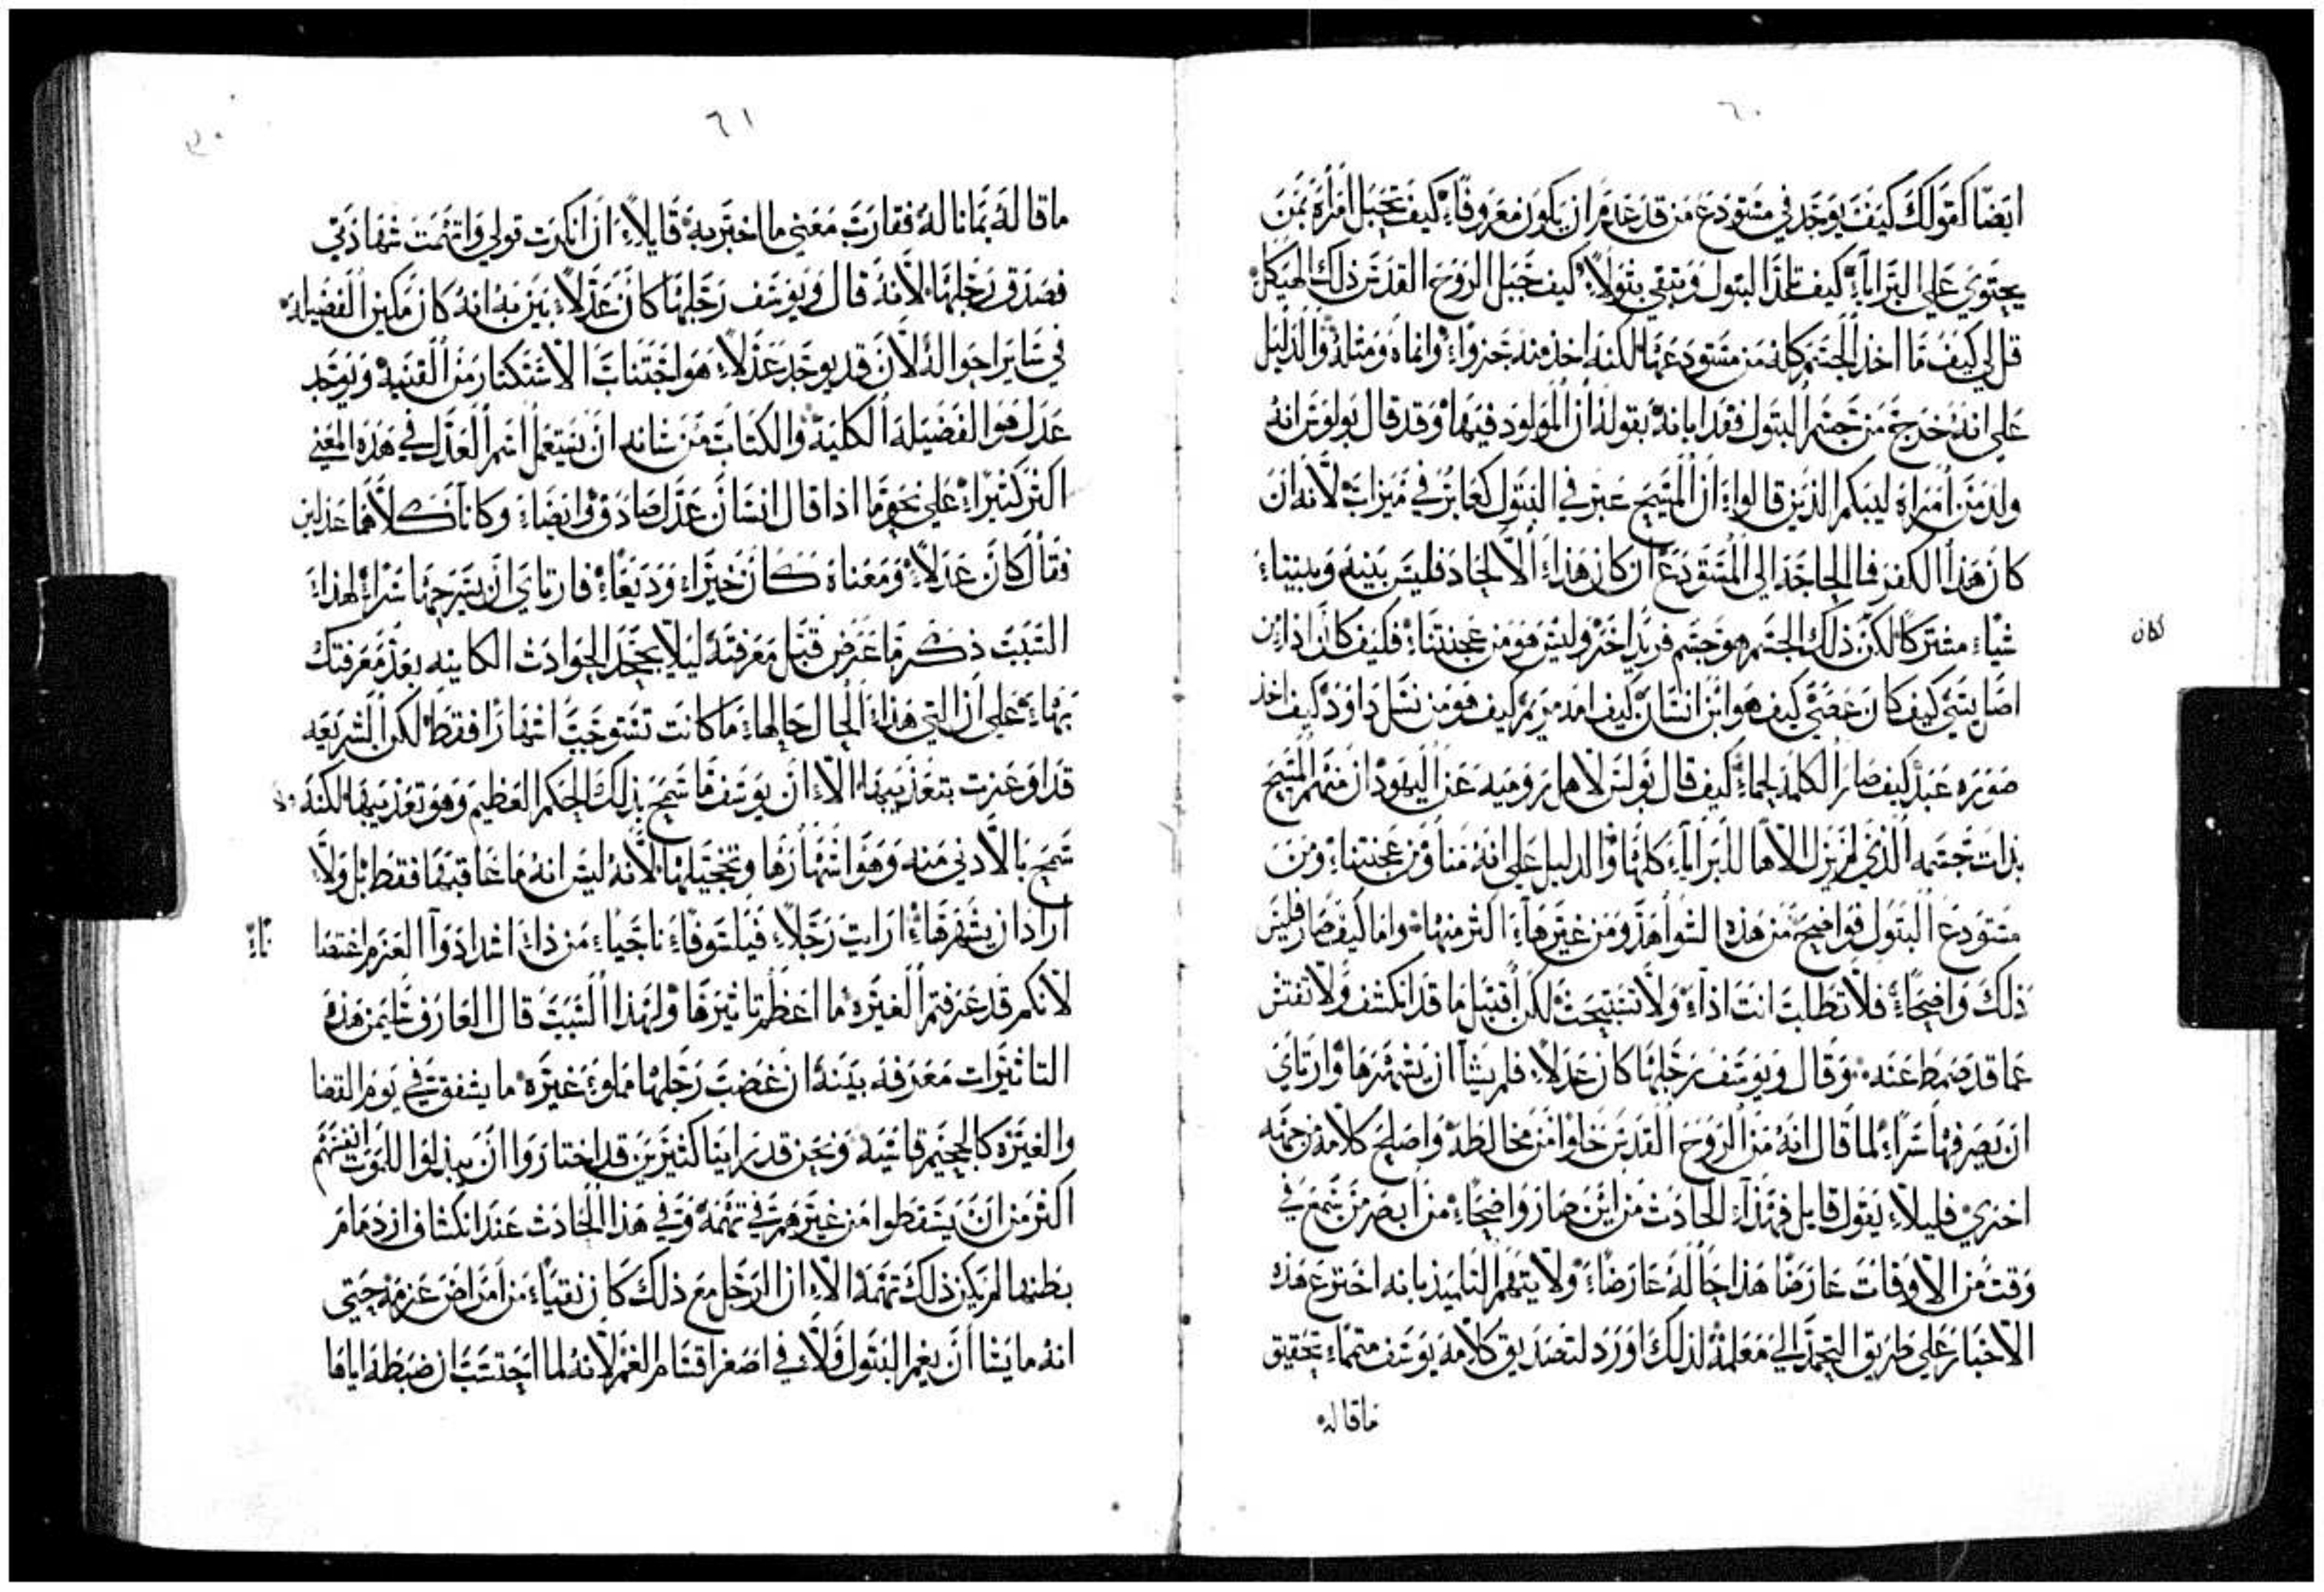 ٦٠
ايضا كقولك كيف يوجد في مستودع من قد عدم ان يكون معروفاً كيف تحبل امراة بمن
يحتوي على البرايا كيف تلد البتول وتبقي بتولاً كيف جبل الروح القدس ذلك الهيكل
قل لي كيف ما اخذ الجسم كله من مستودعها لكنه اخذ منه جزواً وانماه ومثله والدليل
على انه خرج من جسم البتول فقد ابانه بقوله ان المولود فيها وقد قال بولوس انه
ولد من امراه ليبكم الذين قالوا ان المسيح عبر في البتول كعابر في ميزاب لانه ان
كان هذا الكفر فما الحاجة الى المستودع ان كان هذا الالحاد فليس بينه وبيننا
شياً مشتركا لكن ذلك الجسم هو جسم فريد اخر وليس هو من عجنتنا فكيف كان اذا من
كان
اصل يسي كيف كان عصي كيف هو ابن انسان كيف امه مريم كيف هو من نسل داوود كيف اخذ
صوره عبد كيف صار الكلمة لحما كيف قال بولس لاهل روميه عن اليهود ان منهم المسيح
بذات جسمه الذي لم يزل الاها للبرايا كلها والدليل على انه منا ومن عجنتنا ومن
مستودع البتول فواضح من هذه الشواهد ومن غيرها اكثر منها واما كيف صار فليس
ذلك واضحاً فلا تطلب انت اذاً ولا تستبحث لكن اقتبل ما قد انكشف ولا تفتش
عما قد ضبط عنه وقال ويوسف رجلها كان عدلاً فلم يشا ان يشهرها وارتاي
ان يصرفها سراً لما قال انه من الروح القدس خلوا من مخالطة واصلح كلامه من جهه
اخري قليلا يقول قايل فهذا الحادث من اين صار واضحاً من ابصر من سمع في
وقت من الاوقات عارضا هذا حاله عارضاً ولا يتهم التلميذ بانه اخترع هذه
الاخبار على طريق التحمد الي معلمه لذلك اورد لتصديق كلامه يوسف متمما بتحقيق
ماقاله
٦١
ماقاله بما ناله فقارب معني ما اختبر به قايلاً ان انكرت قولي واتهمت شهادتي
فصدق رجلها لانه قال ويوسف رجلها كان عدلاً بين به انه كان مكين الفضيلة
في ساير احواله لان قد يوجد عدلاً هو اجتناب الاستكثار من القنيه ويوجد
عدل هو الفضيلة الكلية والكتاب من شانه ان يستعمل اسم العدل في هذه المعني
اكثر كثيراً على نحو ما اذا قال انسان عدل صادق وايضاً وكانا كلاهما عدلين
فقال كان عدلاً ومعناه كان خيراً وديعاً فارتاي ان يسرحها سراً لهذا
السبب ذكر ما عرض قبل معرفته ليلا يجحد الحوادث الكاينه بعد معرفتك
بها على ان التي هذا الحال حالها ما كانت تستوجب اشهارا فقط لكن الشريعه
قد اوعزت بتعذيبها الا ان يوسف ما سمح بذلك الحكم العظيم وهو تعذيبها لكنه
سمح بالادني منه وهو اشهارها وتخجيلها لانه ليس انه ما عاقبها فقط بل ولا
اراد ان يشهرها ارايت رجلاً فيلسوفاً ناجياً من ذاء اشد ادوا العزم اغتصا
باً
لانكم قد عرفتم الغيره ما اعظم تاثيرها ولهذا السبب قال العارف سليمن هذه
التاثيرات معرفه بينه ان غضب رجلها مملوء غيره ما يشفق في يوم القضا
والغيره كالجحيم قاسيه ونحن قد راينا كثيرين قد اختاروا ان يبذلوا للموت انفسهم
اكثر من ان يسقطوا من غيرهم في تهمه وفي هذا الحادث عند انكشاف ازدمام
بطنها لم يكن ذلك تهمه الا ان الرجل مع ذلك كان نقياً من امراض عزمه حتى
انه ما يشا ان يغم البتول ولا في اصغر اقسام الغم لانه لما احتسب ان ضبطه اياها